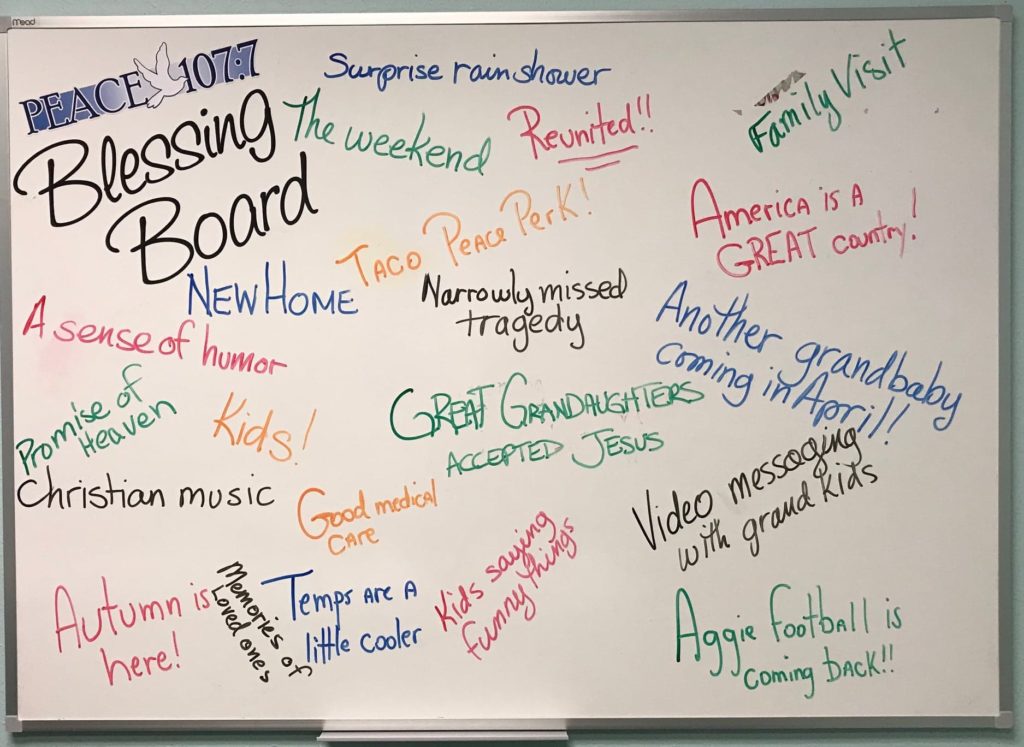 Mead
PEACE 107.7
Blessing
Board
Surprise rain shower
The weekend
Reunited!!
Family Visit
Taco Peace Perk!
America is a
GREAT country!
New Home
Narrowly missed
tragedy
A sense of humor
Another grandbaby
coming in April!!
Promise of
Heaven
Kids!
Great Grandaughters
accepted Jesus
Christian music
Good medical
care
Video messaging
with grand kids
Autumn is
here!
Memories of
Loved ones
Temps are a
little cooler
Kids saying
funny things
Aggie football is
coming back!!